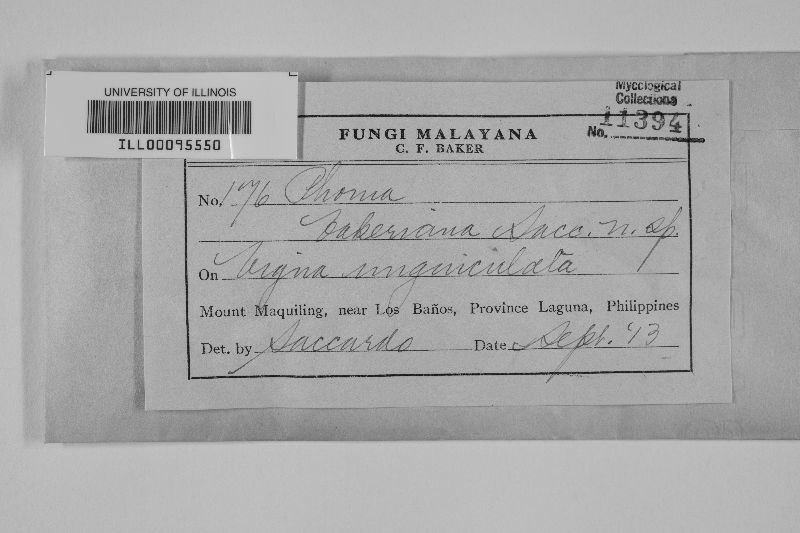 UNIVERSITY OF ILLINOIS
ILL00095550
Mycological
Collections
No. 11394
FUNGI MALAYANA
C. F. BAKER
No. 176 Phoma
bakeriana Sacc. n. sp.
On Vigna unguiculata
Mount Maquiling, near Los Baños, Province Laguna, Philippines
Det. by Saccardo Date Sept. '13